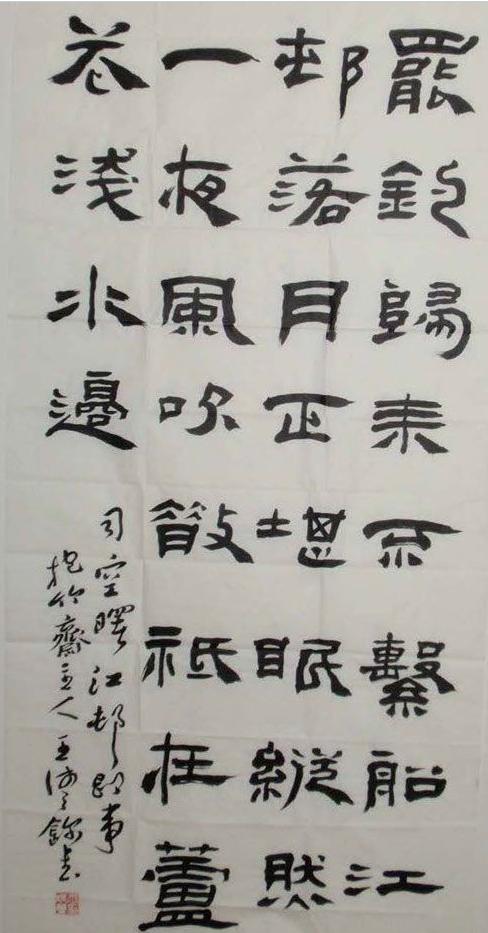 罷釣歸來不繫船江
邨落月正堪眠縱然
一夜風吹散祇在蘆
花淺水邊
司空曙江邨即事
抱竹齋主人王書